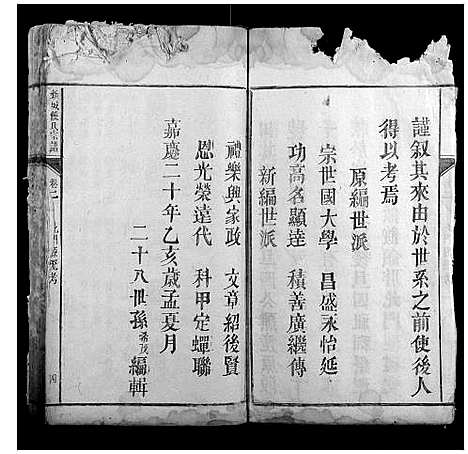 謹叙其來由於世系之前使後人
得以考焉
原編世派
宗世國大學 昌盛永怡延
功高名顯達 積善廣繼傳
新編世派
禮樂興家政 文章紹後賢
恩光榮達代 科甲定蟬聯
嘉慶二十年乙亥歲孟夏月
二十八世孫希茂編輯
氏宗譜
卷之
四